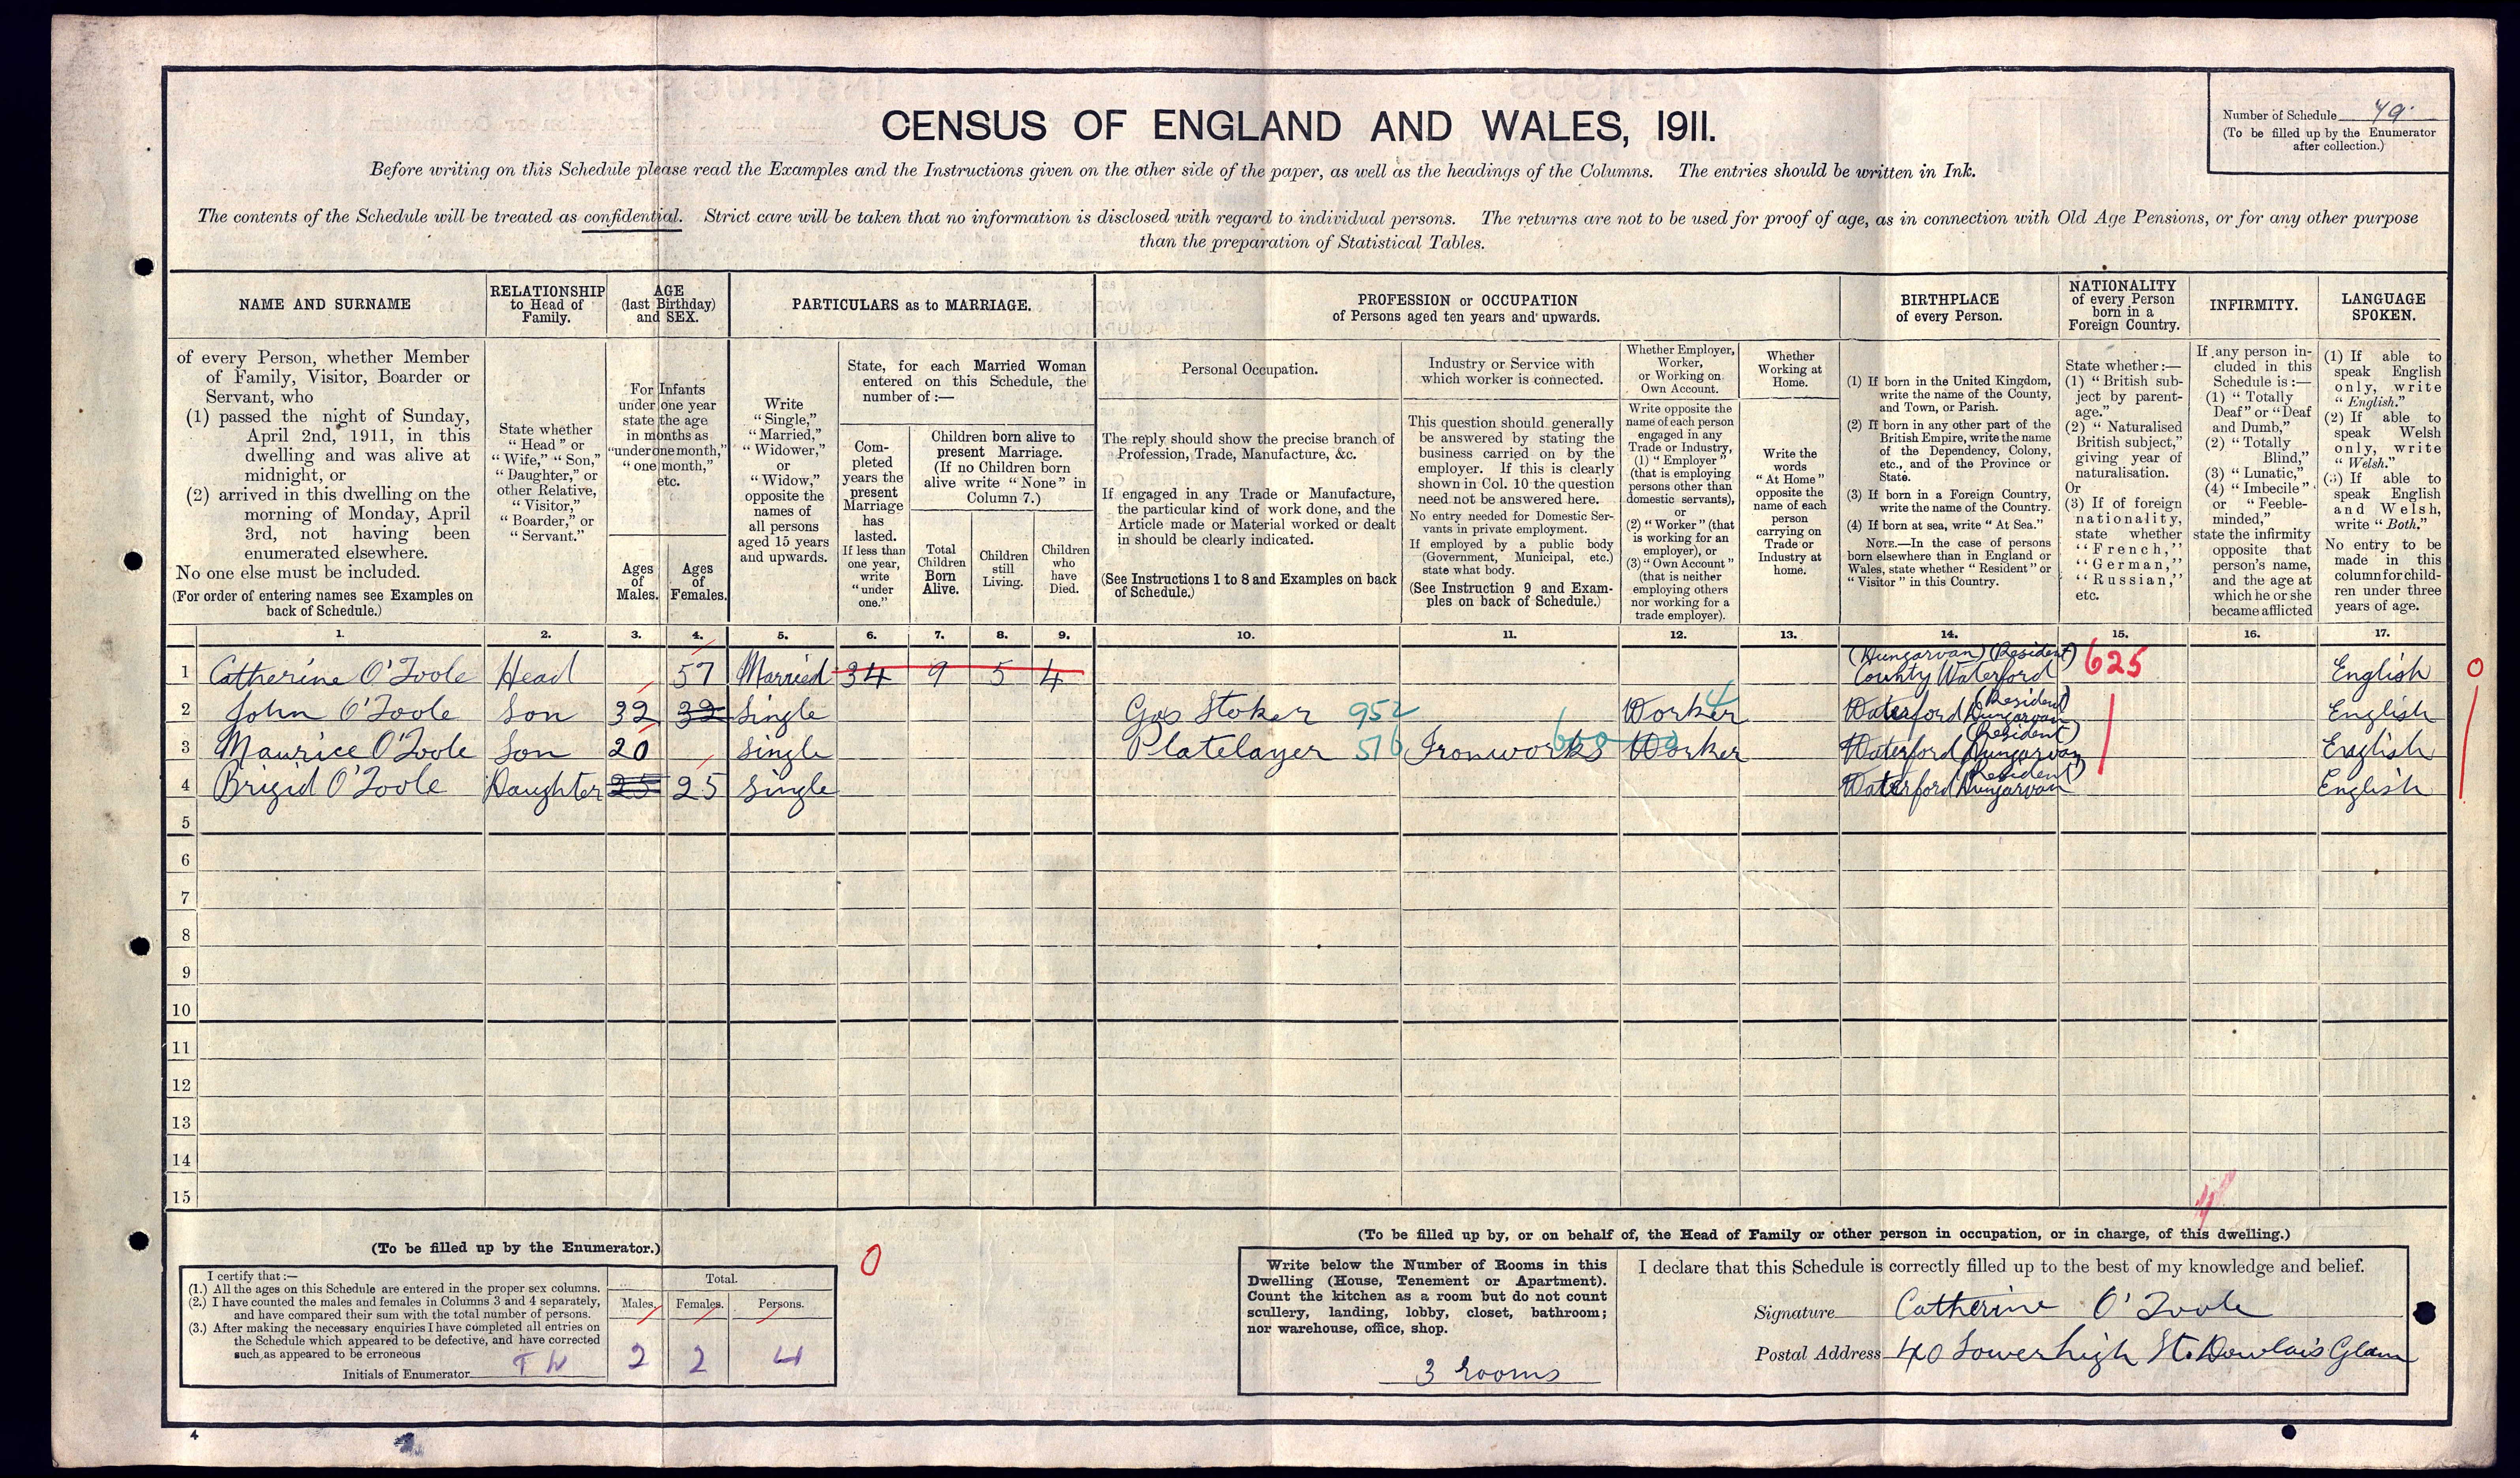 CENSUS OF ENGLAND AND WALES, 1911.
Number of Schedule 49.
(To be filled up by the Enumerator
after collection.)
Before writing on this Schedule please read the Examples and the Instructions given on the other side of the paper, as well as the headings of the Columns. The entries should be written in Ink.
The contents of the Schedule will be treated as confidential. Strict care will be taken that no information is disclosed with regard to individual persons. The returns are not to be used for proof of age, as in connection with Old Age Pensions, or for any other purpose
than the preparation of Statistical Tables.
NAME AND SURNAME
of every Person, whether Member
of Family, Visitor, Boarder or
Servant, who
(1) passed the night of Sunday,
April 2nd, 1911, in this
dwelling and was alive at
midnight, or
(2) arrived in this dwelling on the
morning of Monday, April
3rd, not having been
enumerated elsewhere.
No one else must be included.
(For order of entering names see Examples on
back of Schedule.)
RELATIONSHIP
to Head of
Family.
State whether
"Head" or
"Wife," "Son,"
"Daughter," or
other Relative,
"Visitor,"
"Boarder," or
"Servant."
AGE
(last Birthday)
and SEX.
For Infants
under one year
state the age
in months as
"under one month,"
"one month,"
etc.
Ages
of
Males.
Ages
of
Females.
PARTICULARS as to MARRIAGE.
Write
"Single,"
"Married,"
"Widower,"
or
"Widow,"
opposite the
names of
all persons
aged 15 years
and upwards.
State, for each Married Woman
entered on this Schedule, the
number of :—
Com-
pleted
years the
present
Marriage
has
lasted.
If less than
one year,
write
"under
one."
Children born alive to
present Marriage.
(If no Children born
alive write "None" in
Column 7.)
Total
Children
Born
Alive.
Children
still
Living.
Children
who
have
Died.
PROFESSION or OCCUPATION
of Persons aged ten years and upwards.
Personal Occupation.
The reply should show the precise branch of
Profession, Trade, Manufacture, &c.
If engaged in any Trade or Manufacture,
the particular kind of work done, and the
Article made or Material worked or dealt
in should be clearly indicated.
(See Instructions 1 to 8 and Examples on back
of Schedule.)
Industry or Service with
which worker is connected.
This question should generally
be answered by stating the
business carried on by the
employer. If this is clearly
shown in Col. 10 the question
need not be answered here.
No entry needed for Domestic Ser-
vants in private employment.
If employed by a public body
(Government, Municipal, etc.)
state what body.
(See Instruction 9 and Exam-
ples on back of Schedule.)
Whether Employer,
Worker,
or Working on
Own Account.
Write opposite the
name of each person
engaged in any
Trade or Industry,
(1) "Employer"
(that is employing
persons other than
domestic servants),
or
(2) "Worker" (that
is working for an
employer), or
(3) "Own Account"
(that is neither
employing others
nor working for a
trade employer).
Whether
Working at
Home.
Write the
words
"At Home"
opposite the
name of each
person
carrying on
Trade or
Industry at
home.
BIRTHPLACE
of every Person.
(1) If born in the United Kingdom,
write the name of the County,
and Town, or Parish.
(2) If born in any other part of the
British Empire, write the name
of the Dependency, Colony,
etc., and of the Province or
State.
(3) If born in a Foreign Country,
write the name of the Country.
(4) If born at sea, write "At Sea."
NOTE.—In the case of persons
born elsewhere than in England or
Wales, state whether "Resident" or
"Visitor" in this Country.
NATIONALITY
of every Person
born in a
Foreign Country.
State whether :—
(1) "British sub-
ject by parent-
age."
(2) "Naturalised
British subject,"
giving year of
naturalisation.
Or
(3) If of foreign
nationality,
state whether
"French,"
"German,"
"Russian,"
etc.
INFIRMITY.
If any person in-
cluded in this
Schedule is :—
(1) "Totally
Deaf" or "Deaf
and Dumb,"
(2) "Totally
Blind,"
(3) "Lunatic,"
(4) "Imbecile"
or "Feeble-
minded,"
state the infirmity
opposite that
person's name,
and the age at
which he or she
became afflicted
LANGUAGE
SPOKEN.
(1) If able to
speak English
only, write
"English."
(2) If able to
speak Welsh
only, write
"Welsh."
(3) If able to
speak English
and Welsh,
write "Both."
No entry to be
made in this
column for child-
ren under three
years of age.
1. 2. 3. 4. 5. 6. 7. 8. 9. 10. 11. 12. 13. 14. 15. 16. 17.
(Dungarvan) (Resident)
1 Catherine O'Toole Head 57 Married 34 9 5 4 County Waterford 625 English 0
(Resident)
2 John O'Toole Son 32 32 Single Gas Stoker 952 Worker 4 Waterford Dungarvan English
(Resident)
3 Maurice O'Toole Son 20 Single Platelayer 516 Ironworks 600 Worker Waterford Dungarvan English
(Resident)
4 Brigid O'Toole Daughter 25 25 Single Waterford Dungarvan English
5
6
7
8
9
10
11
12
13
14
15
(To be filled up by the Enumerator.)
I certify that :—
(1.) All the ages on this Schedule are entered in the proper sex columns.
(2.) I have counted the males and females in Columns 3 and 4 separately,
and have compared their sum with the total number of persons.
(3.) After making the necessary enquiries I have completed all entries on
the Schedule which appeared to be defective, and have corrected
such as appeared to be erroneous
Initials of Enumerator T W
Total.
Males. Females. Persons.
2 2 4
0
(To be filled up by, or on behalf of, the Head of Family or other person in occupation, or in charge, of this dwelling.)
Write below the Number of Rooms in this
Dwelling (House, Tenement or Apartment).
Count the kitchen as a room but do not count
scullery, landing, lobby, closet, bathroom;
nor warehouse, office, shop.
3 rooms
I declare that this Schedule is correctly filled up to the best of my knowledge and belief.
Signature Catherine O'Toole
Postal Address 40 Lower high St. Dowlais Glam
4